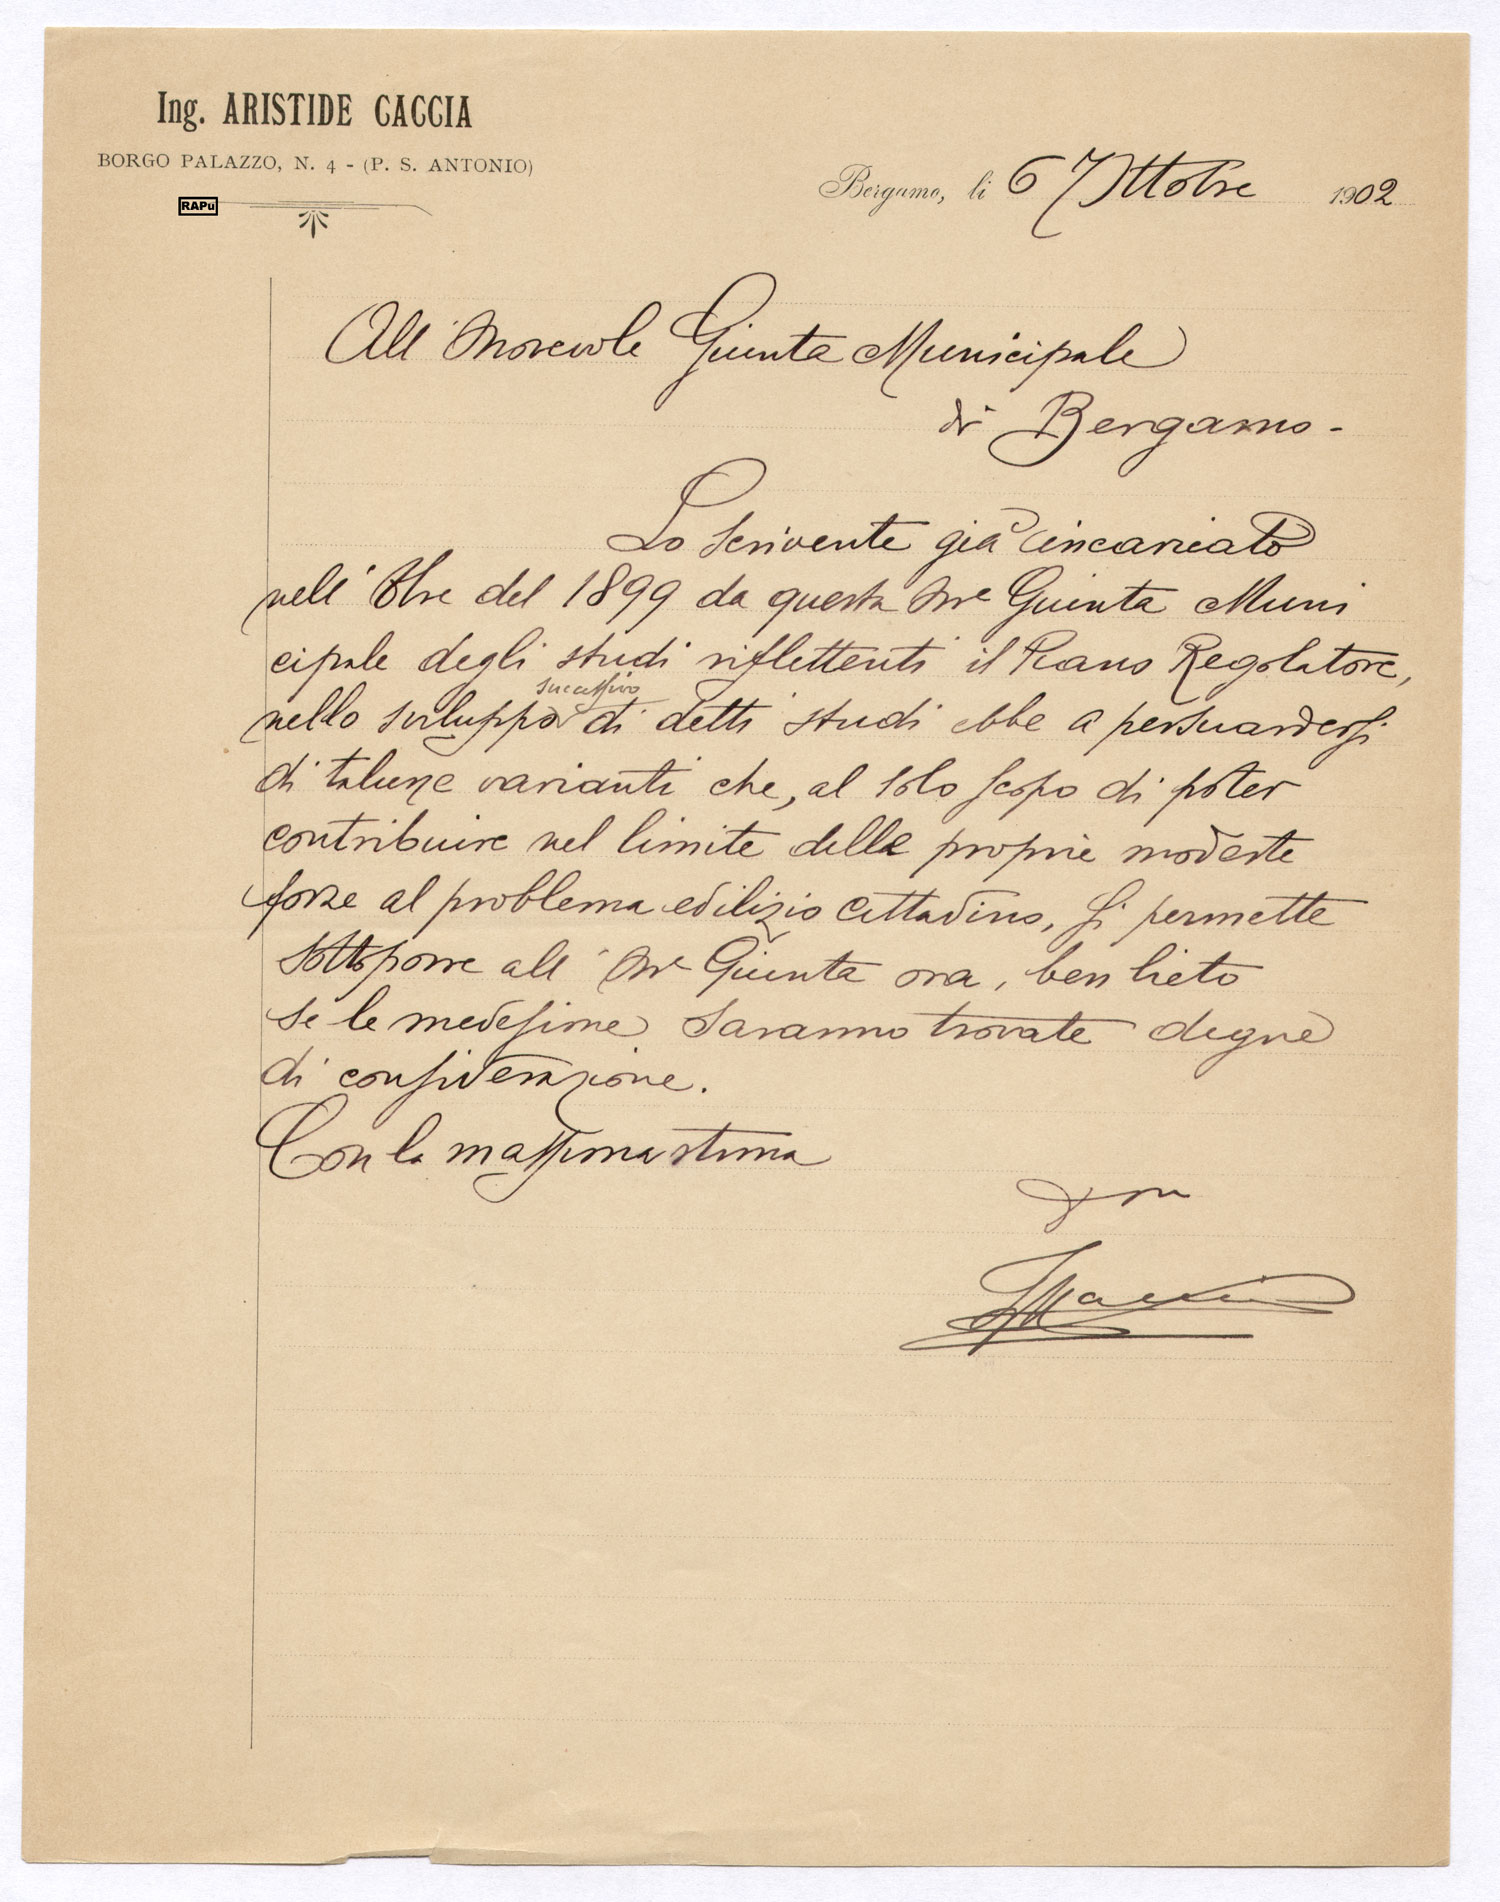 Ing. ARISTIDE CACCIA
BORGO PALAZZO, N. 4 - (P. S. ANTONIO)
RAPu
Bergamo, li 6 Ottobre 1902
All' Onorevole Giunta Municipale
di Bergamo -
Lo scrivente già incaricato
nell' Obre del 1899 da questa On.e Giunta Muni
cipale degli studi riflettenti il Piano Regolatore,
successivo
nello sviluppo di detti studi ebbe a persuardersi
di talune varianti che, al solo scopo di poter
contribuire nel limite delle proprie modeste
forze al problema edilizio cittadino, si permette
sottoporre all' On.e Giunta ora, ben lieto
se le medesime saranno trovate degne
di considerazione.
Con la massima stima
ACaccia